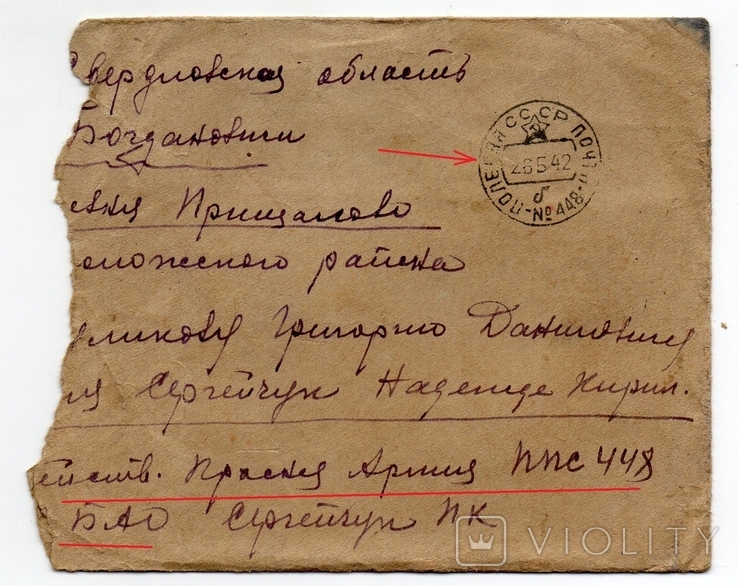 вердловская область
Богданович
Прищаново
оложского района
еликову Григорию Даниловичу
Сергейчук Надежде Кирил.
ейств. Красная Армия ППС 448
БАО Сергейчук ПК
СССР
ПОЛЕВАЯ ПОЧТА
28 5 42
б
№ 448
VIOLITY